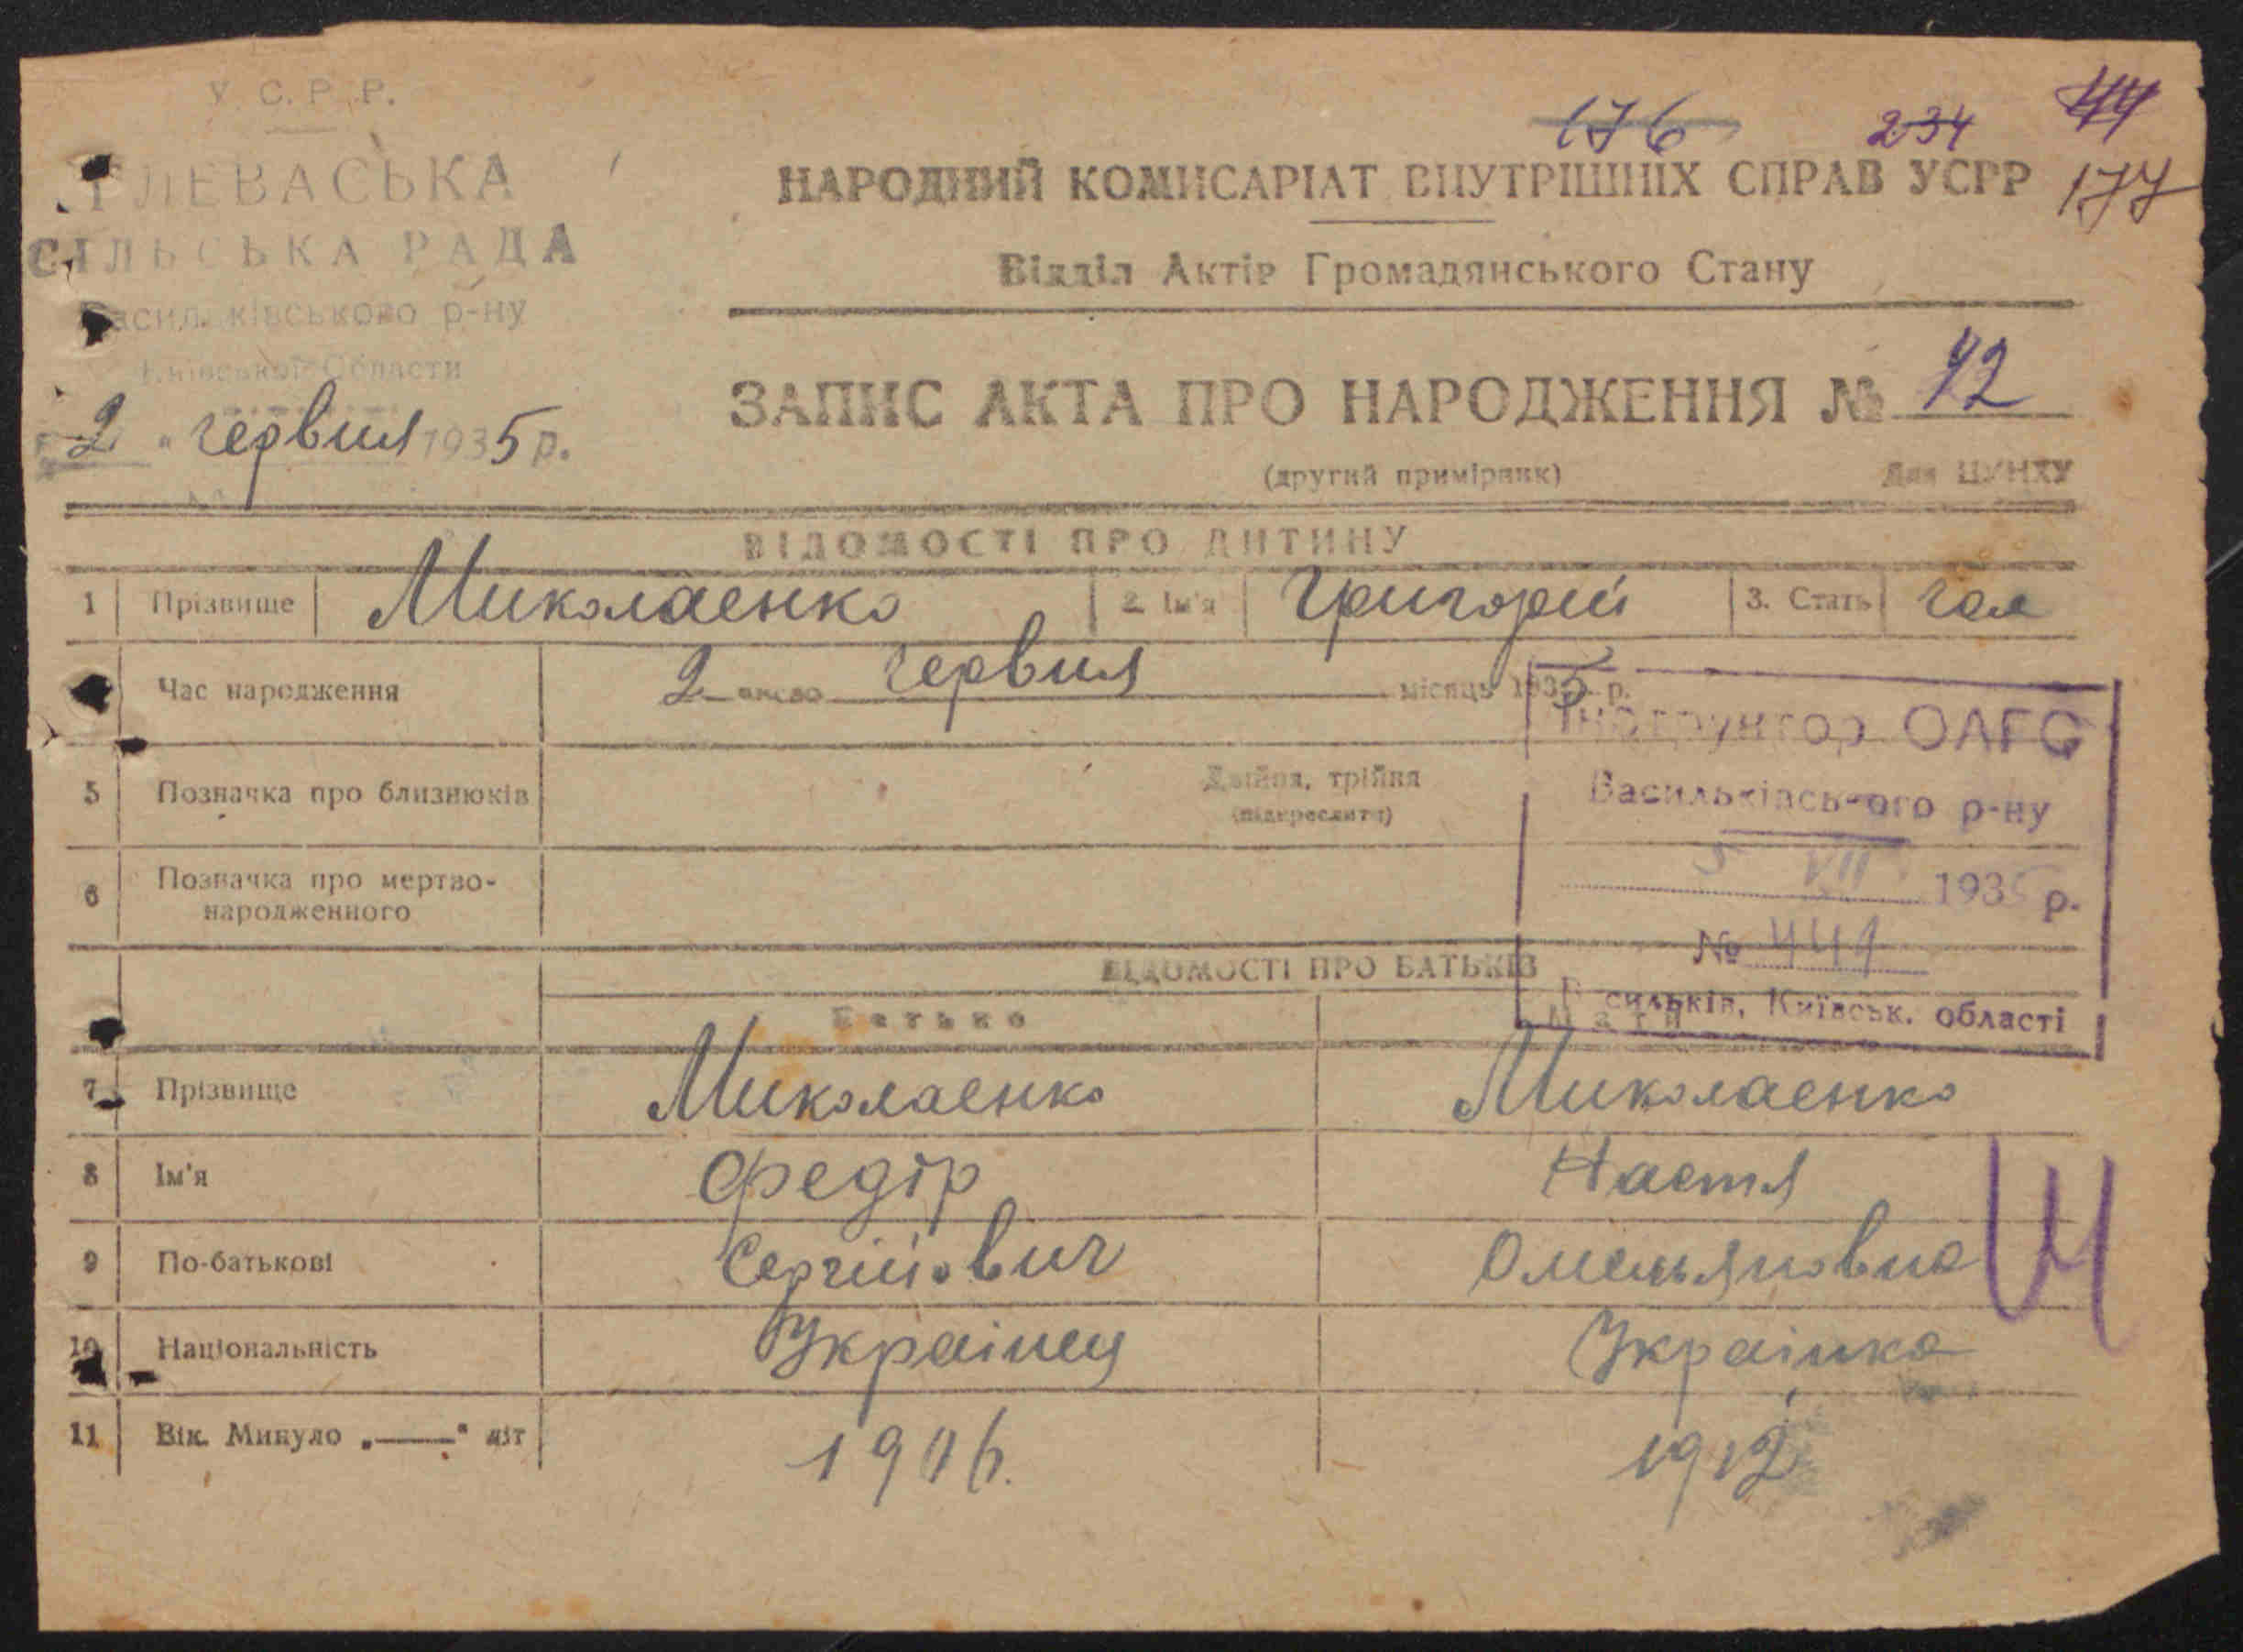 У. С. Р. Р.
ГЛЕВАСЬКА
СІЛЬСЬКА РАДА
Васильківського р-ну
Київської Области
2 " червня 1935 р.
176 234 44
177
НАРОДНИЙ КОМИСАРІАТ ВНУТРІШНІХ СПРАВ УСРР
Відділ Актів Громадянського Стану
ЗАПИС АКТА ПРО НАРОДЖЕННЯ №
(другий примірник) Для ЦУНХУ
ВІДОМОСТІ ПРО ДИТИНУ
1 Прізвище Миколаенко 2. Ім'я Григорий 3. Стать чол
Час народження 2 число червня місяць 1935 р.
5 Позначка про близнюків Двійня, трійня
(підкреслити)
6 Позначка про мертво-
народженного
Інструктор ОАГС
Васильківського р-ну
5 VII 1935 р.
№ 441
Васильків, Київськ. області
ВІДОМОСТІ ПРО БАТЬКІВ
Батько Мати
7 Прізвище Миколаенко Миколаенко
8 Ім'я Федір Настя
9 По-батькові Сергійович Омельяновна
10 Національність Украінец Украінка
11 Вік. Минуло „——" літ 1906. 1912